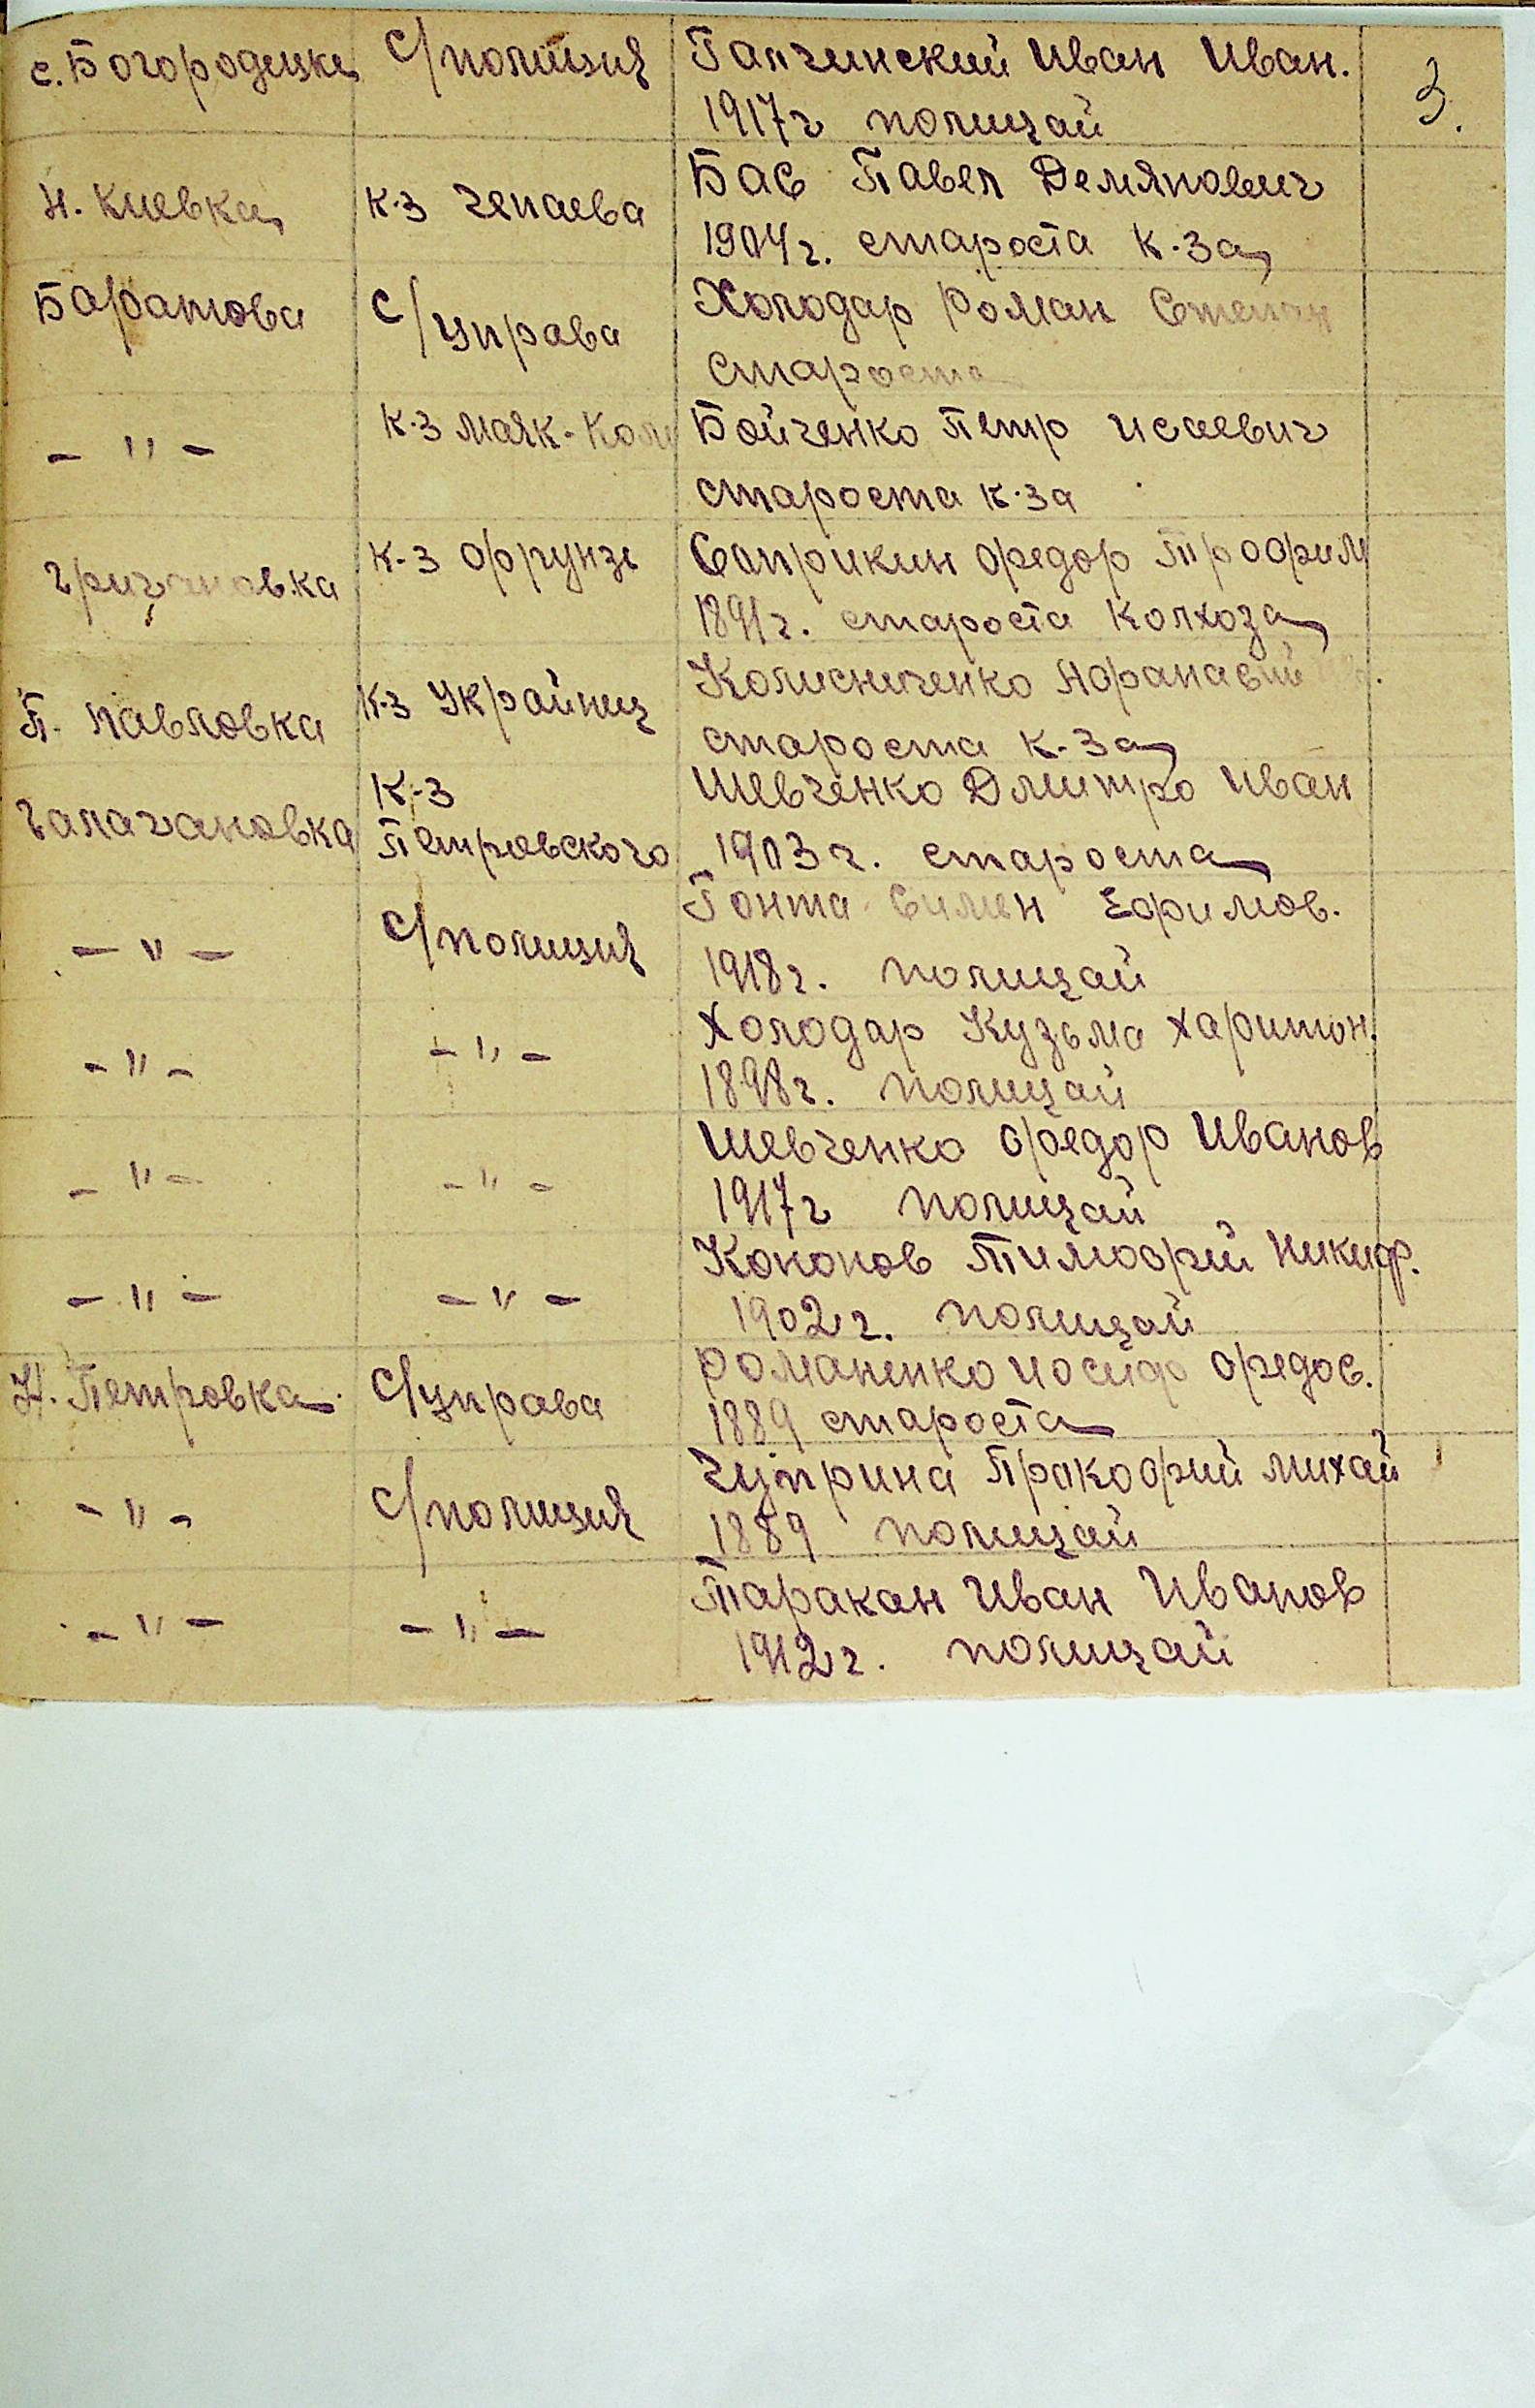 с. Богородицке с/полиция Галчинский Иван Иван. 3.
1917г полицай
Н. Киевка к-з Чепаева Бас Павел Демянович
1904г. староста к-за
Баратовва с/управа Холодар Роман Степан
староста
- " - к-з Маяк-Ком Бойченко Петр Исаевич
староста к-за
к-з Фрунзе Саприкин Федор Трофим
1891г. староста колхоза
П. Павловка к-з Украйнец Колисниченко Афанасий
староста к-за
Галагановка к-з Шевченко Дмитро Иван
Петровского 1903г. староста
- " - с/полиция Гонта Симен Ефимов.
1918г. полицай
- " - - " - Холодар Кузьма Харитон.
1898г. полицай
- " - - " - Шевченко Федор Иванов
1917г полицай
- " - - " - Кононов Тимофей Никиф.
1902г. полицай
Н. Петровка с/управа Романенко Иосиф Федос.
1889 староста
- " - с/полиция Чуприна Пракофий Михай
1889 полицай
- " - - " - Таракан Иван Иванов
1912г. полицай